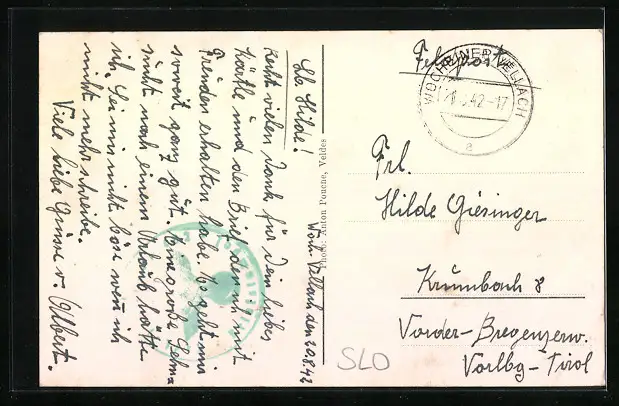 Woch. Vellach den 20.8.42
Lb. Hilde!
Recht vielen Dank für Dein liebes
Kärtle und den Brief, den ich mit
Freuden erhalten habe. Es geht mir
soweit ganz gut. Eine große Sehn=
sucht nach einem Urlaub hätte
ich. Sei mir nicht böse wenn ich
nicht mehr schreibe.
Viele liebe Grüsse v. Albert.
Photo: Anton Pouche, Veldes
Feldpost
WOCHEINER VELLACH
.42-17
a
Frl.
Hilde Giesinger
Krumbach 8
Vorder-Bregenzerw.
Vorlbg-Tirol
SLO